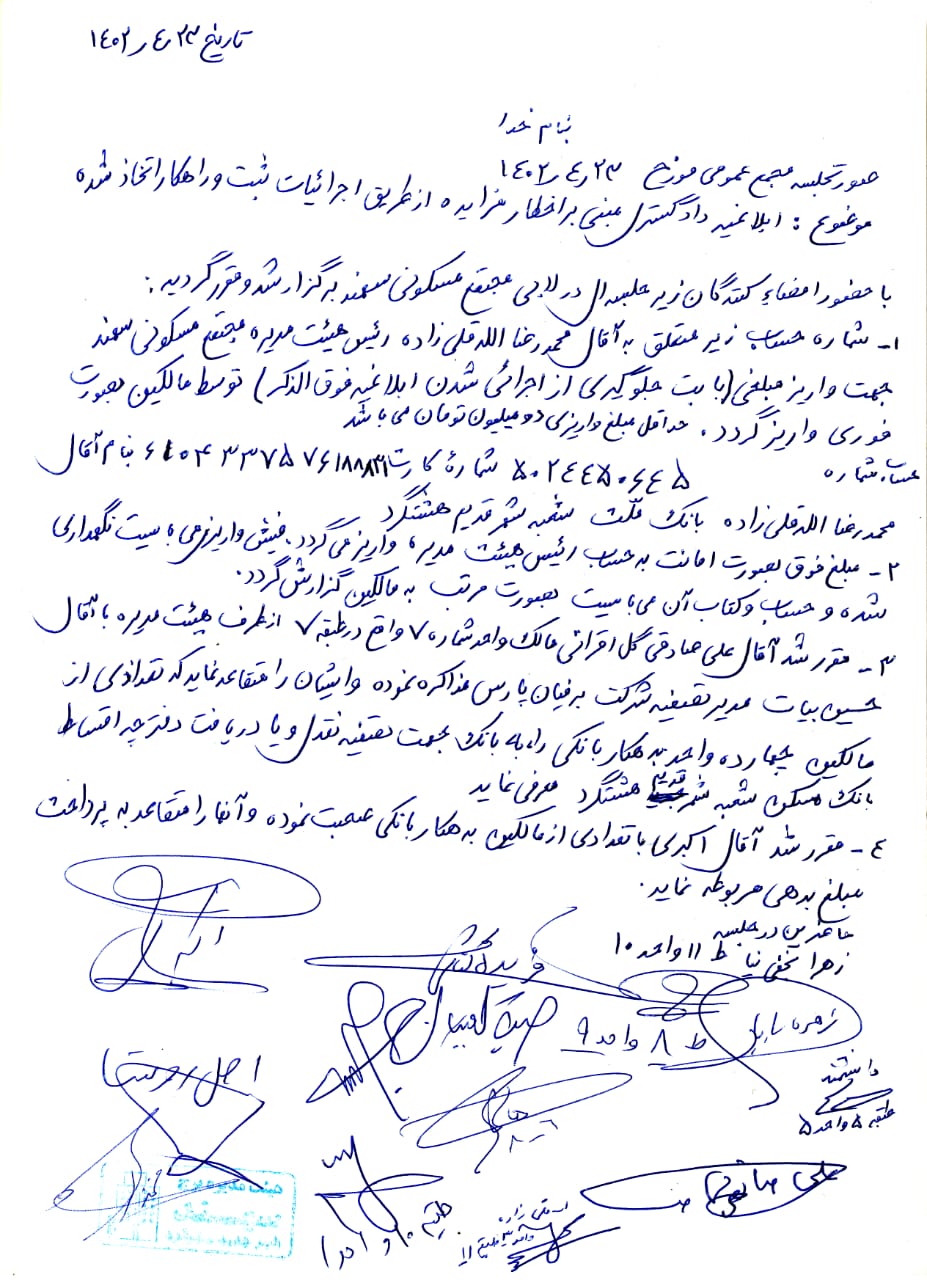 تاریخ ۲۳ر۴ر۱۴۰۲
بنام خدا
صورتجلسه مجمع عمومی مورخ ۲۳ر۴ر۱۴۰۲
موضوع : ابلاغیه دادگستری مبنی بر اخطار مزایده از طریق اجرائیات ثبت و راهکار اتخاذ شده
با حضور امضاء کنندگان زیر جلسه ای در لابی مجتمع مسکونی سهند برگزار شد و مقرر گردید :
۱- شماره حساب زیر متعلق به آقای محمدرضا اللدقلی زاده رئیس هیئت مدیره مجتمع مسکونی سهند
جهت واریز مبلغی (بابت جلوگیری از اجرائی شدن ابلاغیه فوق الذکر) توسط مالکین بصورت
فوری واریز گردد . حداقل مبلغ واریزی دو میلیون تومان می باشد
حساب شماره ۵۰۲۴۴۵۰۶۴۵ شماره کارت ۶۱۰۴۳۳۷۵۷۶۱۸۸۸۳۱ بنام آقای
محمدرضا اللدقلی زاده بانک ملت شعبه شهر قدیم هشتگرد
۲- مبلغ فوق بصورت امانت به حساب رئیس هیئت مدیره واریز می گردد. فیش واریزی می بایست نگهداری
شده و حساب و کتاب آن می بایست بصورت مرتب به مالکین گزارش گردد.
۳- مقرر شد آقای علی صادقی گل افزانی مالک واحد شماره ۷ واقع در طبقه ۷ از طرف هیئت مدیره با آقای
حسین بیات مدیر تصفیه شرکت برفیان پارس مذاکره نموده و ایشان را متقاعد نماید که تعدادی از
مالکین چهارده واحد بدهکار بانکی را به بانک بجهت تصفیه نقدی و یا دریافت دفترچه اقساط
بانک مسکن شعبه شهر قدیم هشتگرد معرفی نماید
۴- مقرر شد آقای اکبری با تعدادی از مالکین بدهکار بانکی صحبت نموده و آنها را متقاعد به پرداخت
مبلغ بدهی مربوطه نماید.
حاضرین در جلسه
زهرا نجفی نیا ط ۱۱ واحد ۱۰
ط ۸ واحد ۹
دانشمند
طبقه ۵ واحد ۵
علی صادقی
طبقه ۱۰ واحد ۱